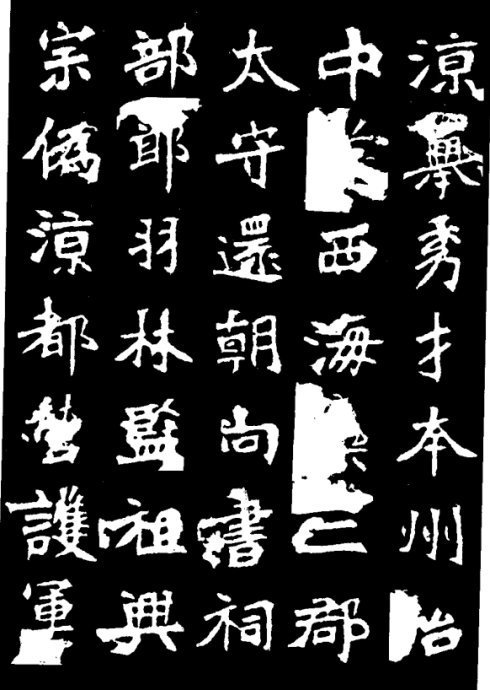 涼舉秀才本州治
中西海二郡
太守還朝尚書祠
部郎羽林監祖興
宗偽涼都營護軍